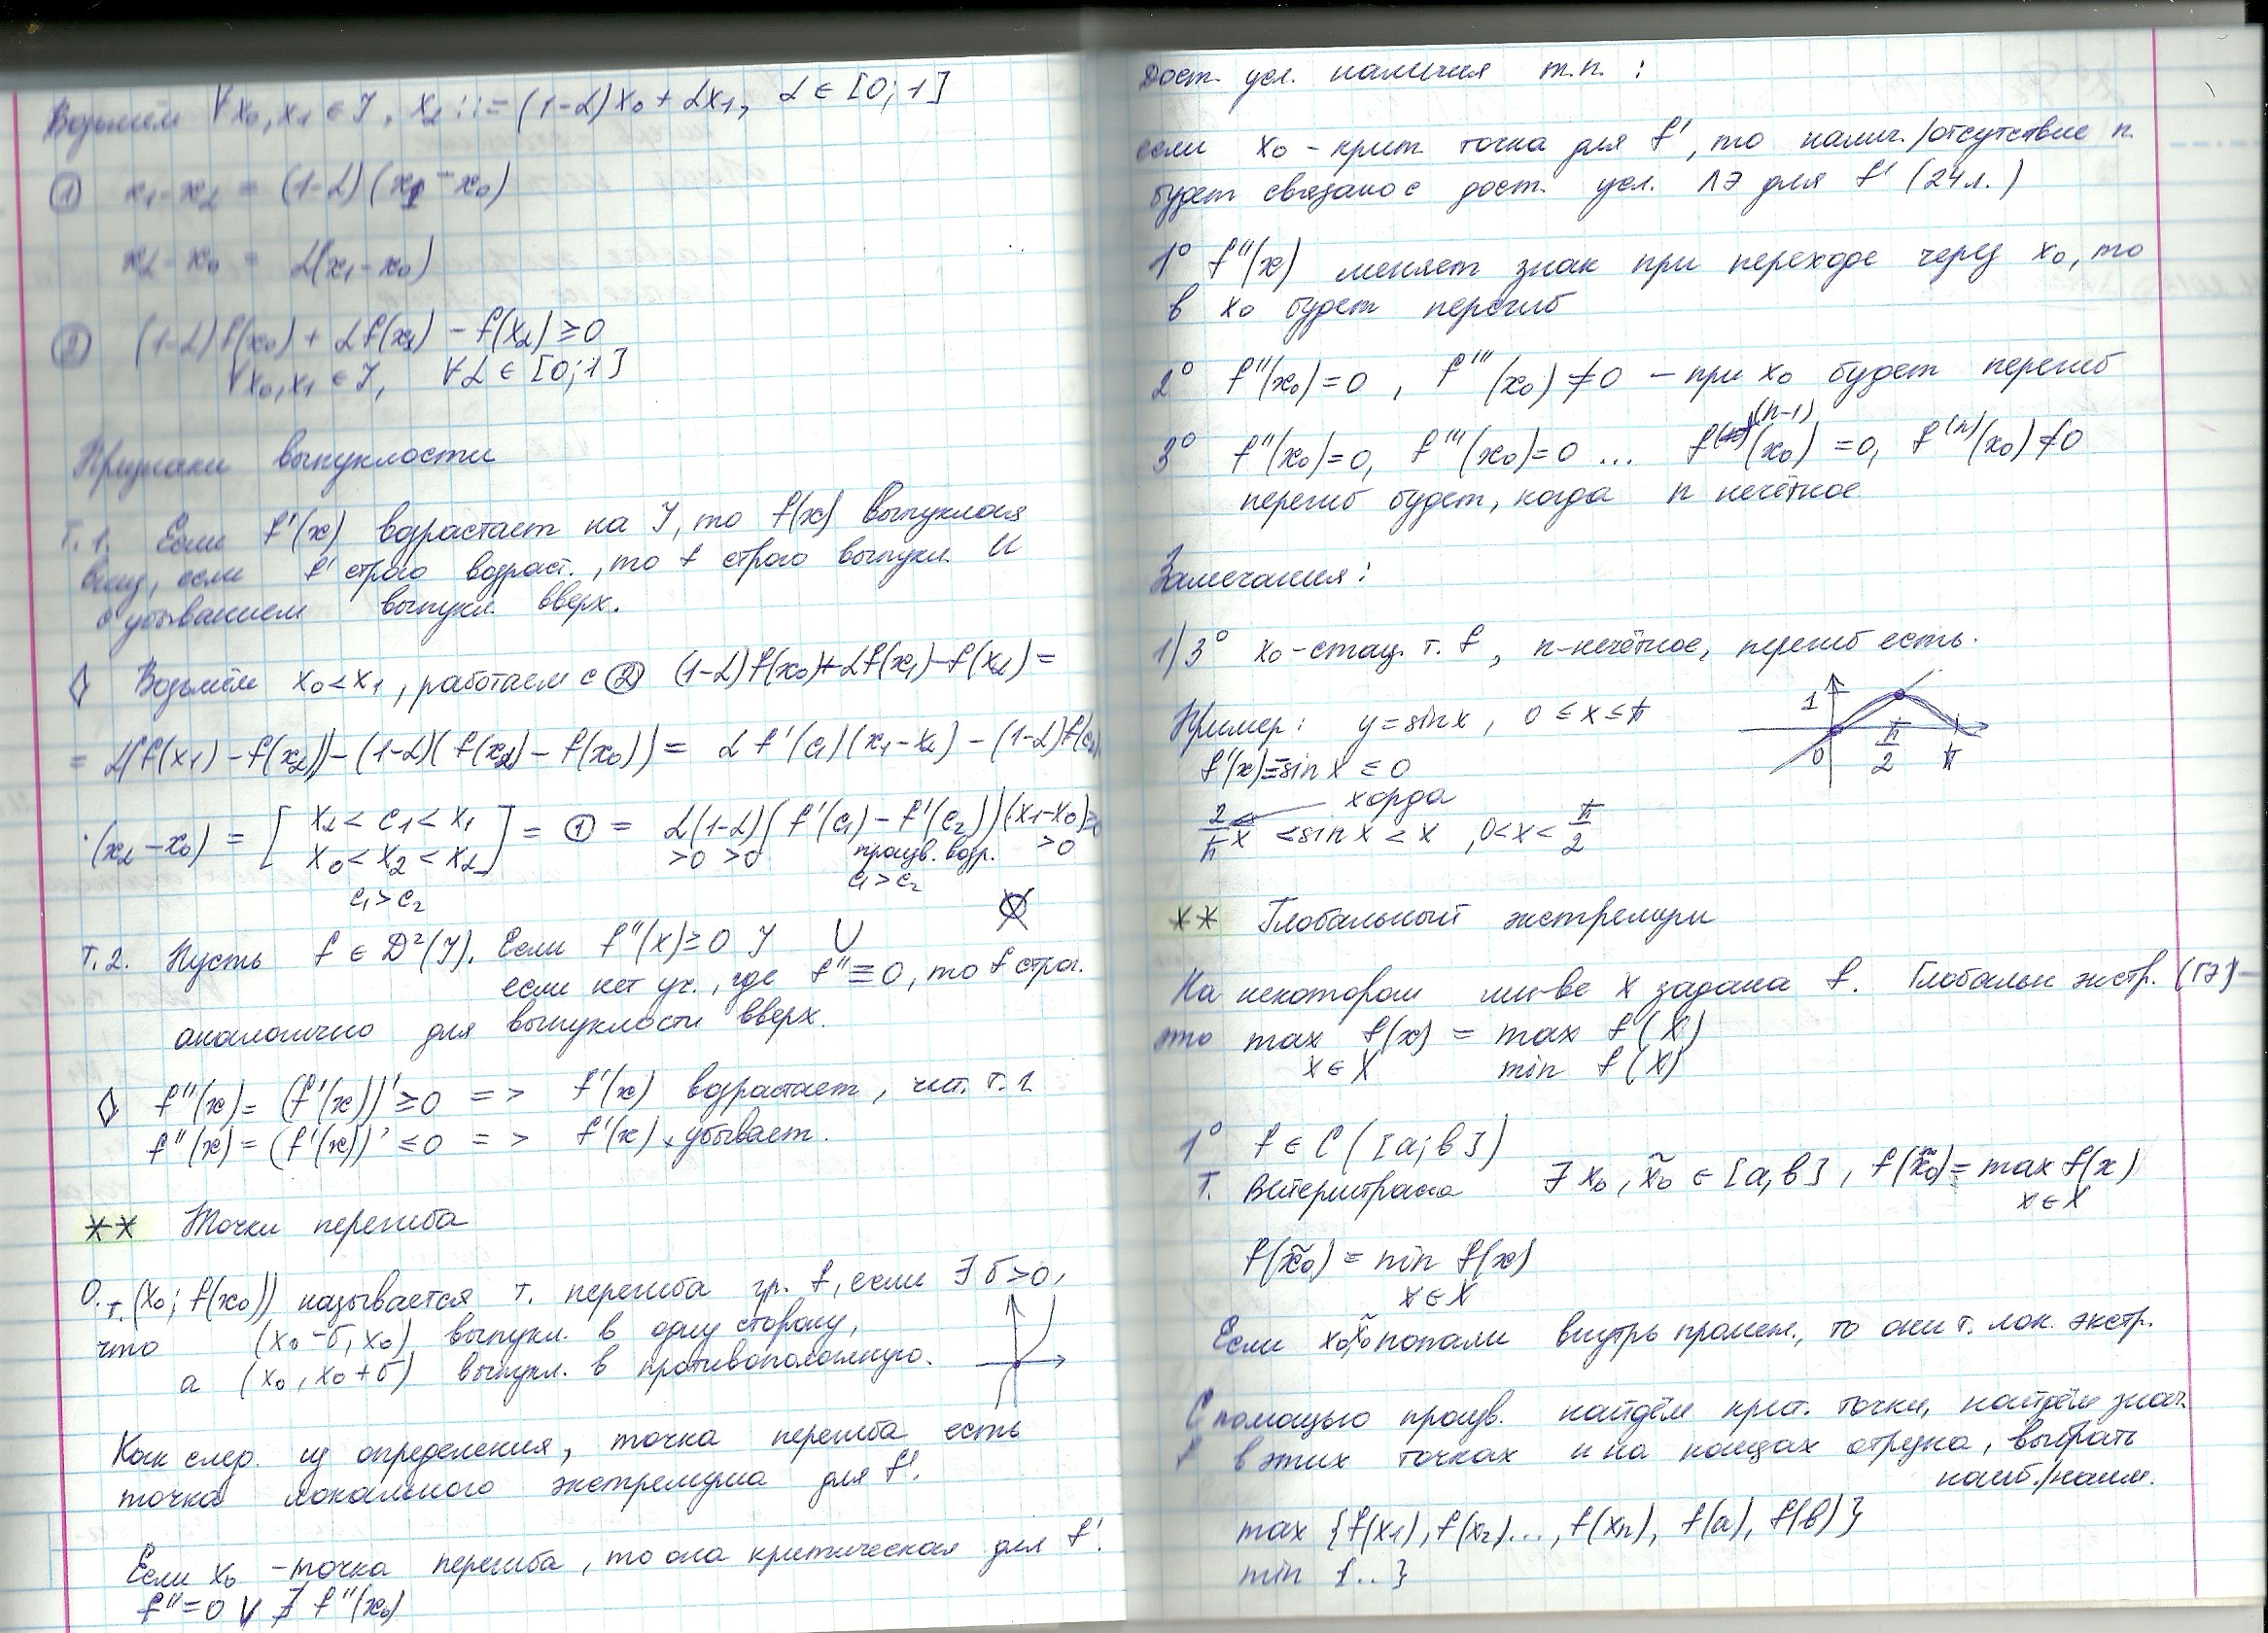 Возьмём ∀x₀,x₁ ∈ J, x_α ::= (1-α)x₀ + αx₁, α ∈ [0;1]
① x₁-x_α = (1-α)(x₁-x₀)
x_α - x₀ = α(x₁-x₀)
② (1-α)f(x₀) + αf(x₁) - f(x_α) ≥ 0
∀x₀,x₁ ∈ J, ∀α ∈ [0;1]
Признаки выпуклости
Т.1. Если f'(x) возрастает на J, то f(x) выпуклая
вниз, если f' строго возраст., то f строго выпукл. И
с убыванием выпукл. вверх.
◊ Возьмём x₀<x₁, работаем с ② (1-α)f(x₀)+αf(x₁)-f(x_α) =
= α(f(x₁)-f(x_α))-(1-α)(f(x_α)-f(x₀)) = α f'(c₁)(x₁-x_α) - (1-α)f'(c₂)
·(x_α-x₀) = [ x_α < c₁ < x₁ ] = ① = α(1-α)(f'(c₁) - f'(c₂))(x₁-x₀) ≥
x₀ < x₂ < x_α >0 >0 произв. возр. >0
c₁>c₂ c₁>c₂
Т.2. Пусть f ∈ D²(J). Если f''(x) ≥ 0 J ∪
если нет уч., где f'' ≡ 0, то f строг.
аналогично для выпуклости вверх.
◊ f''(x) = (f'(x))' ≥ 0 => f'(x) возрастает, чит. т.1
f''(x) = (f'(x))' ≤ 0 => f'(x) убывает.
** Точки перегиба
О. т.(x₀; f(x₀)) называется т. перегиба гр. f, если ∃ б>0,
что (x₀-б, x₀) выпукл. в одну сторону,
а (x₀, x₀+б) выпукл. в противоположную.
Как след. из определения, точка перегиба есть
точка локального экстремума для f'.
Если x₀ - точка перегиба, то она критическая для f'.
f''=0 ∨ ∄ f''(x₀)
Дост. усл. наличия т.п. :
если x₀ - крит. точка для f', то налич./отсутствие п.
будет связано с дост. усл. ЛЭ для f' (24л.)
1° f''(x) меняет знак при переходе через x₀, то
в x₀ будет перегиб
2° f''(x₀)=0 , f'''(x₀) ≠ 0 - при x₀ будет перегиб
3° f''(x₀)=0, f'''(x₀)=0 ... f⁽ⁿ⁻¹⁾(x₀) = 0, f⁽ⁿ⁾(x₀) ≠ 0
перегиб будет, когда n нечётное
Замечания:
1) 3° x₀-стац. т. f , n-нечётное, перегиб есть.
Пример: y = sin x , 0 ≤ x ≤ π
f'(x)=-sin x ≤ 0
1 0 π/2 π
хорда
2/π x < sin x < x , 0<x<π/2
** Глобальный экстремум
На некотором мн-ве X задана f. Глобальн экстр. (ГЭ)-
это max f(x) = max f(X)
x∈X min f(X)
1° f ∈ C([a;b])
Т. Вейерштрасса ∃ x₀, x̃₀ ∈ [a,b], f(x̃₀) = max f(x)
x∈X
f(x̃₀) = min f(x)
x∈X
Если x₀,x̃₀ попали внутрь промеж., то они т. лок. экстр.
С помощью произв. найдём крит. точки, найдём знач.
f в этих точках и на концах отрезка, выбрать
наиб./наим.
max {f(x₁), f(x₂)..., f(xₙ), f(a), f(b)}
min {..}